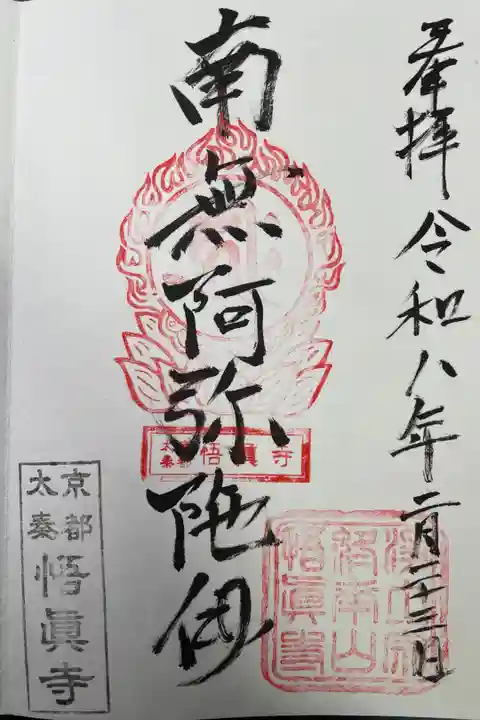 奉拝 令和八年二月二十三日
南無阿弥陀佛
悟眞寺
洛南山
悟眞寺
京都
太秦
悟眞寺